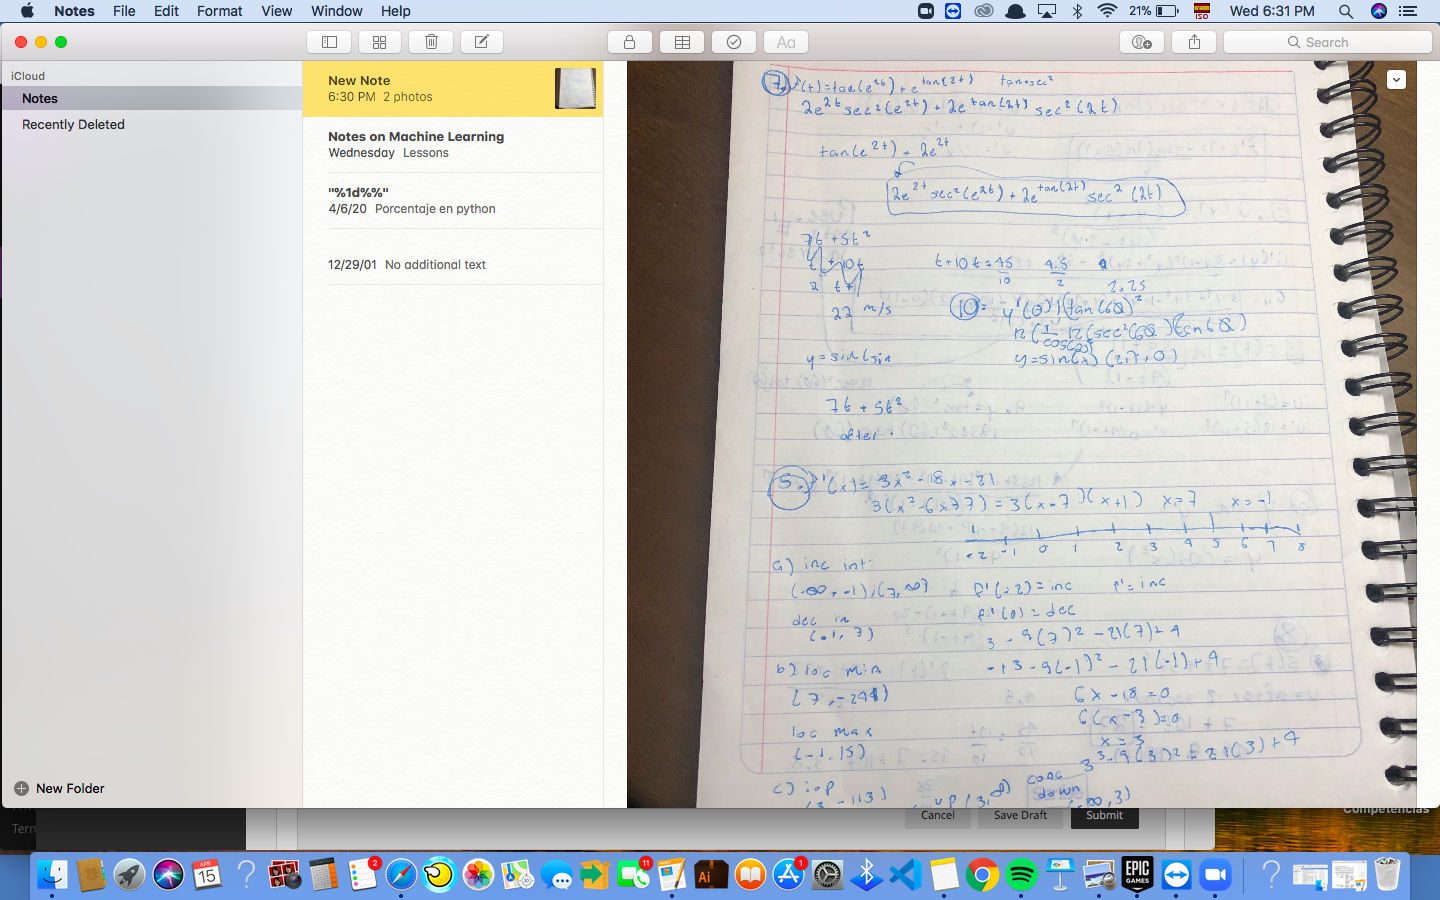 Notes File Edit Format View Window Help
21%
ISO
Wed 6:31 PM
Aa
Search
iCloud
Notes
Recently Deleted
New Folder
New Note
6:30 PM 2 photos
Notes on Machine Learning
Wednesday Lessons
"%1d%%"
4/6/20 Porcentaje en python
12/29/01 No additional text
7. f(t)=tan(e^2t)+e^tan(2t) tan=sec²
2e^2t sec²(e^2t) + 2e^tan(2t) sec²(2t)
tan(e^2t) = 2e^2t
2e^2t sec²(e^2t) + 2e^tan(2t) sec²(2t)
7t + 5t²
t + 10t t+10t = 45/10 4.5/2 2.25
22 m/s 10=
y = sin(sin y=sin(x) (2π, 0)
7t + 5t²
after
5. f'(x) = 3x² - 18x - 21
= 3(x-7)(x+1) x=7 x=-1
-2 -1 0 1 2 3 4 5 6 7 8
a) inc int:
(-∞, -1);(7, ∞) f'(-2) = inc f' = inc
dec in f'(0) = dec
(-1, 7) 3 - 9(7)² - 21(7) + 4
b) loc min -13 - 9(-1)² - 21(-1) + 4
(7, -241) 6x - 18 = 0
6(x-3)=0
loc max x = 3
(-1, 15)
c) iop conc
(3, -113) up (3, ∞) down (-∞, 3)
Cancel Save Draft Submit
Competencias
Term
APR
15
2
11
1
Ai
EPIC
GAMES